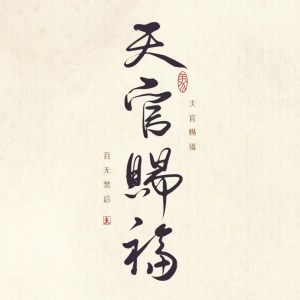 天官赐福
天官赐福
百无禁忌